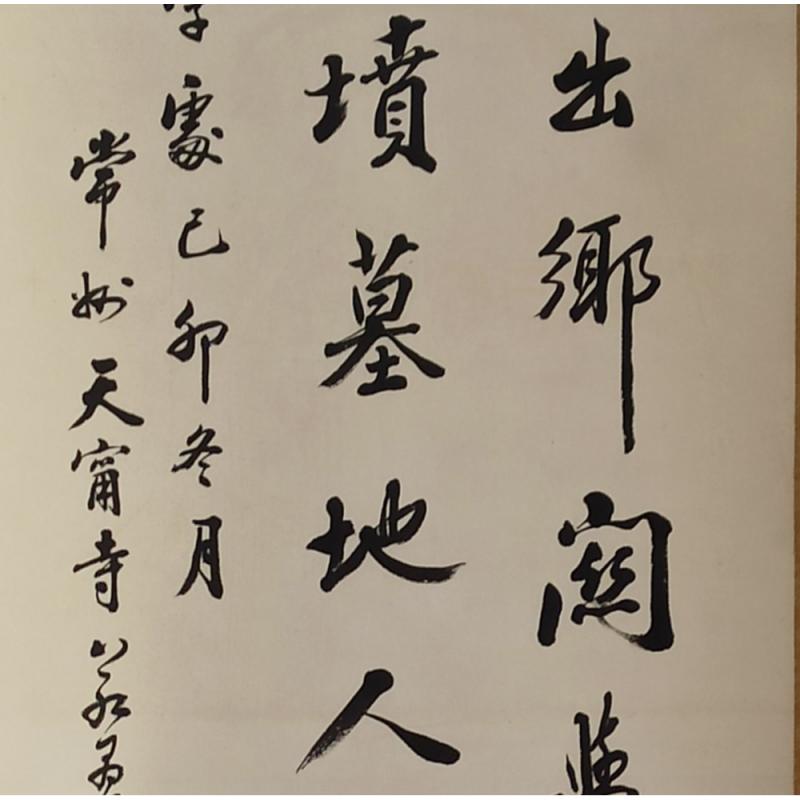 出鄉關
墳墓地人
處己卯冬月
常州天甯寺